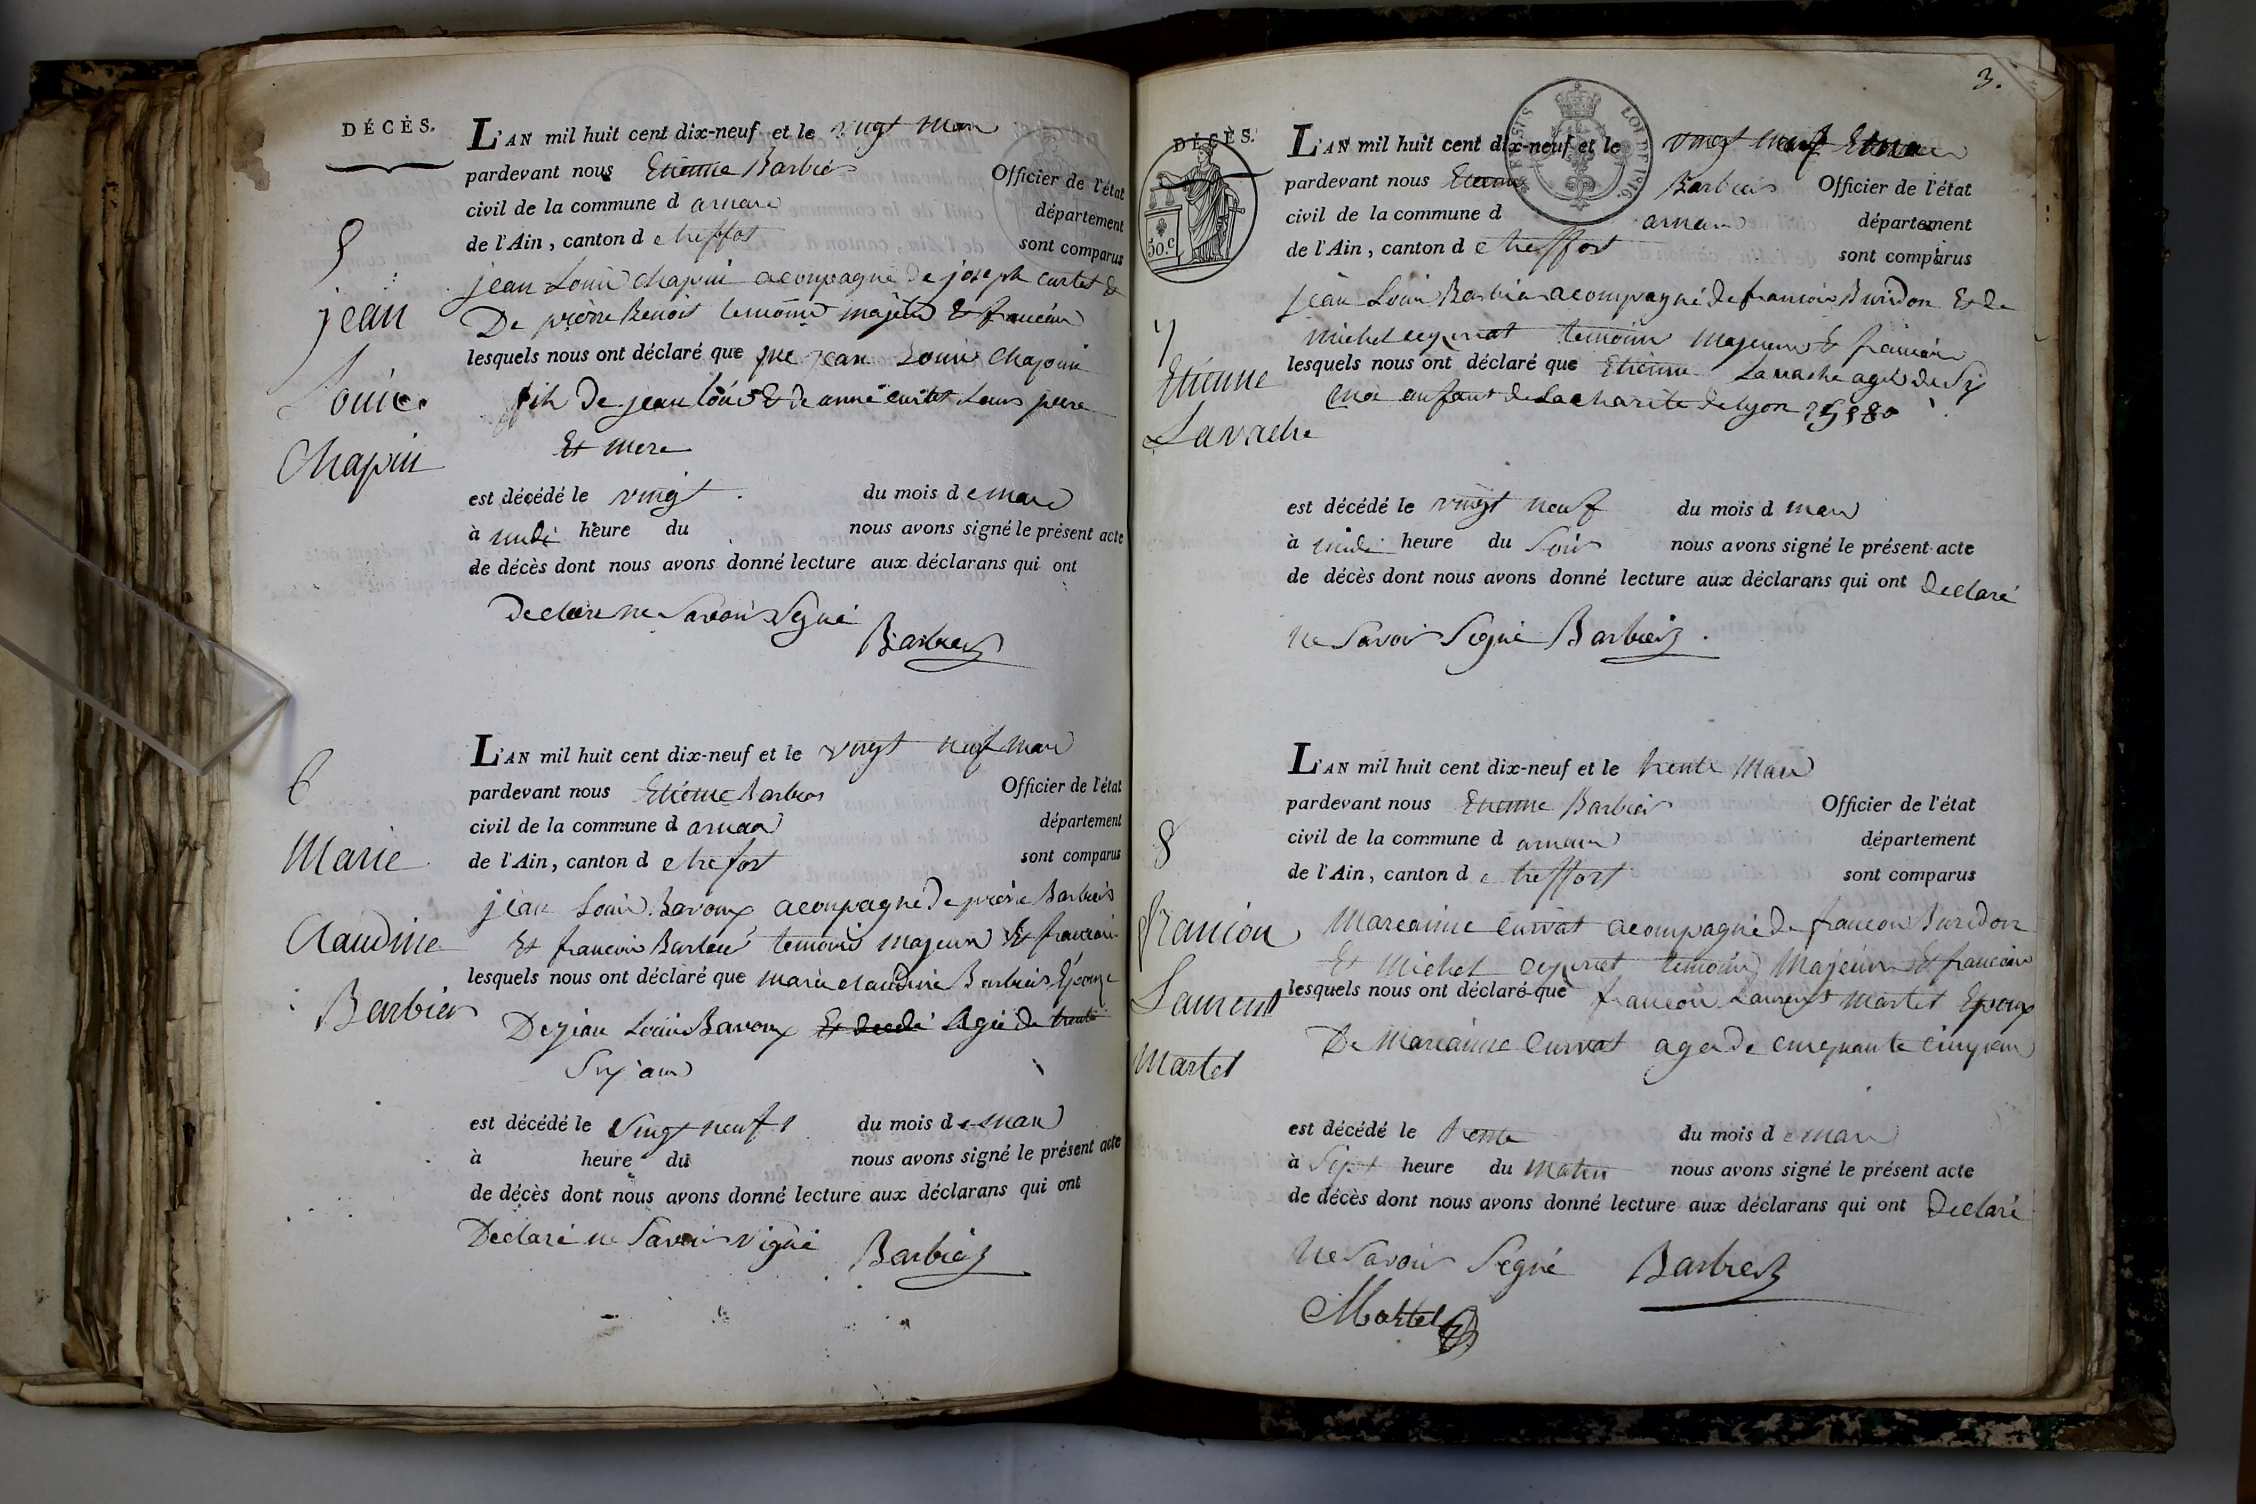 DÉCÈS.
L'AN mil huit cent dix-neuf et le vingt mars
pardevant nous Etienne Barbier Officier de l'état
civil de la commune d arnans département
de l'Ain, canton d e treffort sont comparus
5
jean
Louis
Chapui
jean Louis chapui acompagné de joseph curtet &
De pierre Benoit temoins majeur & francais
lesquels nous ont déclaré que que jean Louis Chapuis
fils de jean louis & de anne curtet Leurs pere
Et mere
est décédé le vingt du mois d e mars
à midi heure du nous avons signé le présent acte
de décès dont nous avons donné lecture aux déclarans qui ont
Declare ne Savoir Signé
Barbier
6
Marie
Claudine
Barbier
L'AN mil huit cent dix-neuf et le vingt neuf mars
pardevant nous Etienne Barbier Officier de l'état
civil de la commune d arnans département
de l'Ain, canton d e trefort sont comparus
jean Louis Bavoux acompagné De pierre Barbier
Et francois temoins majeurs Et francais
lesquels nous ont déclaré que marie claudine Barbier Epouze
De jean Louis Bavoux Et decedé Agée de trente
Six ans
est décédé le Vingt neuf du mois d e mars
à heure du nous avons signé le présent acte
de décès dont nous avons donné lecture aux déclarans qui ont
Declaré ne Savoir signé
Barbier
3.
DÉCÈS.
50.c
LOI DE 1816.
L'AN mil huit cent dix-neuf et le vingt neuf
pardevant nous Etienne Barbier Officier de l'état
civil de la commune d arnans département
de l'Ain, canton d e treffort sont comparus
7
Etienne
Lavache
jean Louis Barbier acompagné de francois Buridon Et de
michel temoins majeurs & francais
lesquels nous ont déclaré que Etienne Lavache agé de Six
moi enfant de La charité de lyon
est décédé le vingt neuf du mois d mars
à midi heure du Soir nous avons signé le présent acte
de décès dont nous avons donné lecture aux déclarans qui ont Declaré
ne Savoir Signé Barbier
8
francois
Laurent
Martet
L'AN mil huit cent dix-neuf et le trente Mars
pardevant nous Etienne Barbier Officier de l'état
civil de la commune d arnans département
de l'Ain, canton d e treffort sont comparus
Marianne Curvat acompagné de francois Buridon
Et Michel temoins Majeurs Et francais
lesquels nous ont déclaré que francois Laurent Martet Epoux
De Marianne Curvat agé de cinquante cinq ans
est décédé le trente du mois d e mars
à Sept heure du matin nous avons signé le présent acte
de décès dont nous avons donné lecture aux déclarans qui ont Declaré
ne Savoir Segné Barbier
Martel